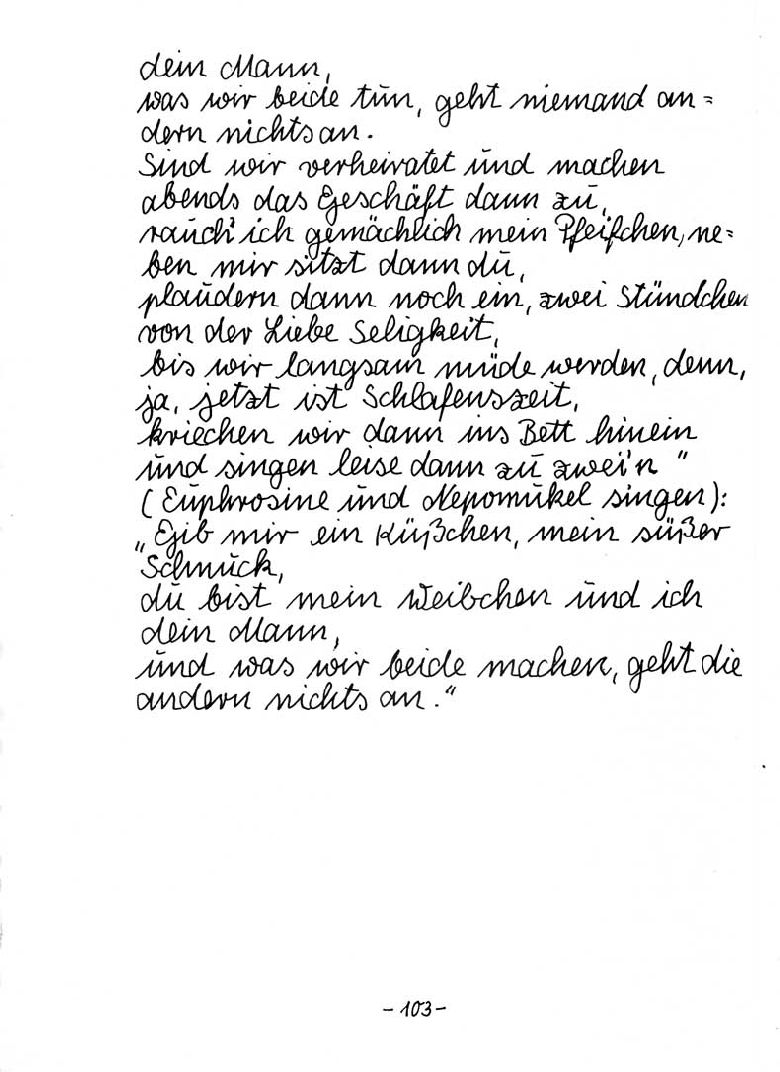 dein Mann,
was wir beide tun, geht niemand an=
dern nichts an.
Sind wir verheiratet und machen
abends das Geschäft dann zu,
rauch' ich gemächlich mein Pfeifchen, ne=
ben mir sitzt dann du,
plaudern dann noch ein, zwei Stündchen
von der Liebe Seligkeit,
bis wir langsam müde werden, denn,
ja, jetzt ist Schlafenszeit,
kriechen wir dann ins Bett hinein
und singen leise dann zu zwei'n "
(Euphrosine und Nepomukel singen):
„Gib mir ein Küßchen, mein süßer
Schmuck,
du bist mein Weibchen und ich
dein Mann,
und was wir beide machen, geht die
andern nichts an.“
- 103 -